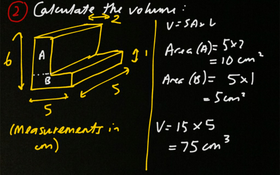 2 Calculate the volume:
2
6
A
B
1
5
5
(Measurements in
cm)
V = SA x L
Area (A) = 5x2
= 10 cm²
Area (B) = 5 x 1
= 5cm²
V = 15 x 5
= 75 cm³